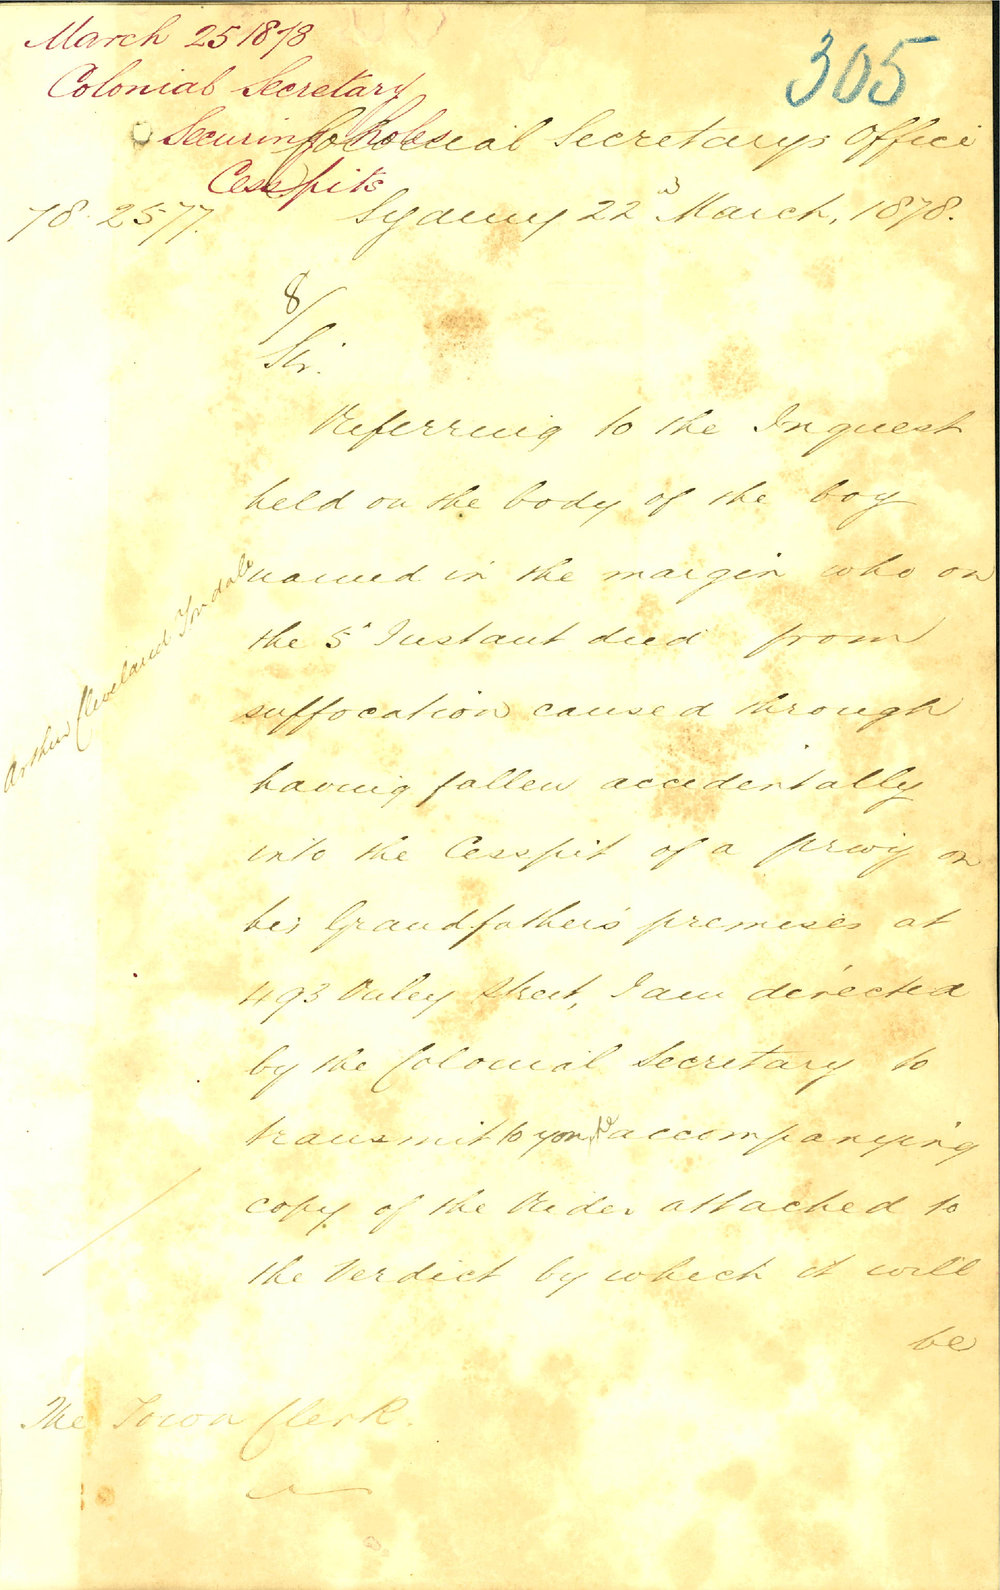 March 25 1878
305
Colonial Secretary
Securing Holes
Cess pits
Colonial Secretarys Office
78. 2577.
Sydney 22d March, 1878.
8/
Sir.
Referring to the Inquest
held on the body of the boy
named in the margin who on
Arthur Cleveland
the 5th Instant died from
suffocation caused through
having fallen accidentally
into the Cesspit of a privy on
his Grandfather's premises at
493 Street, I am directed
by the Colonial Secretary to
transmit to you the accompanying
copy of the Rider attached to
the Verdict by which it will
be
The Town Clerk.